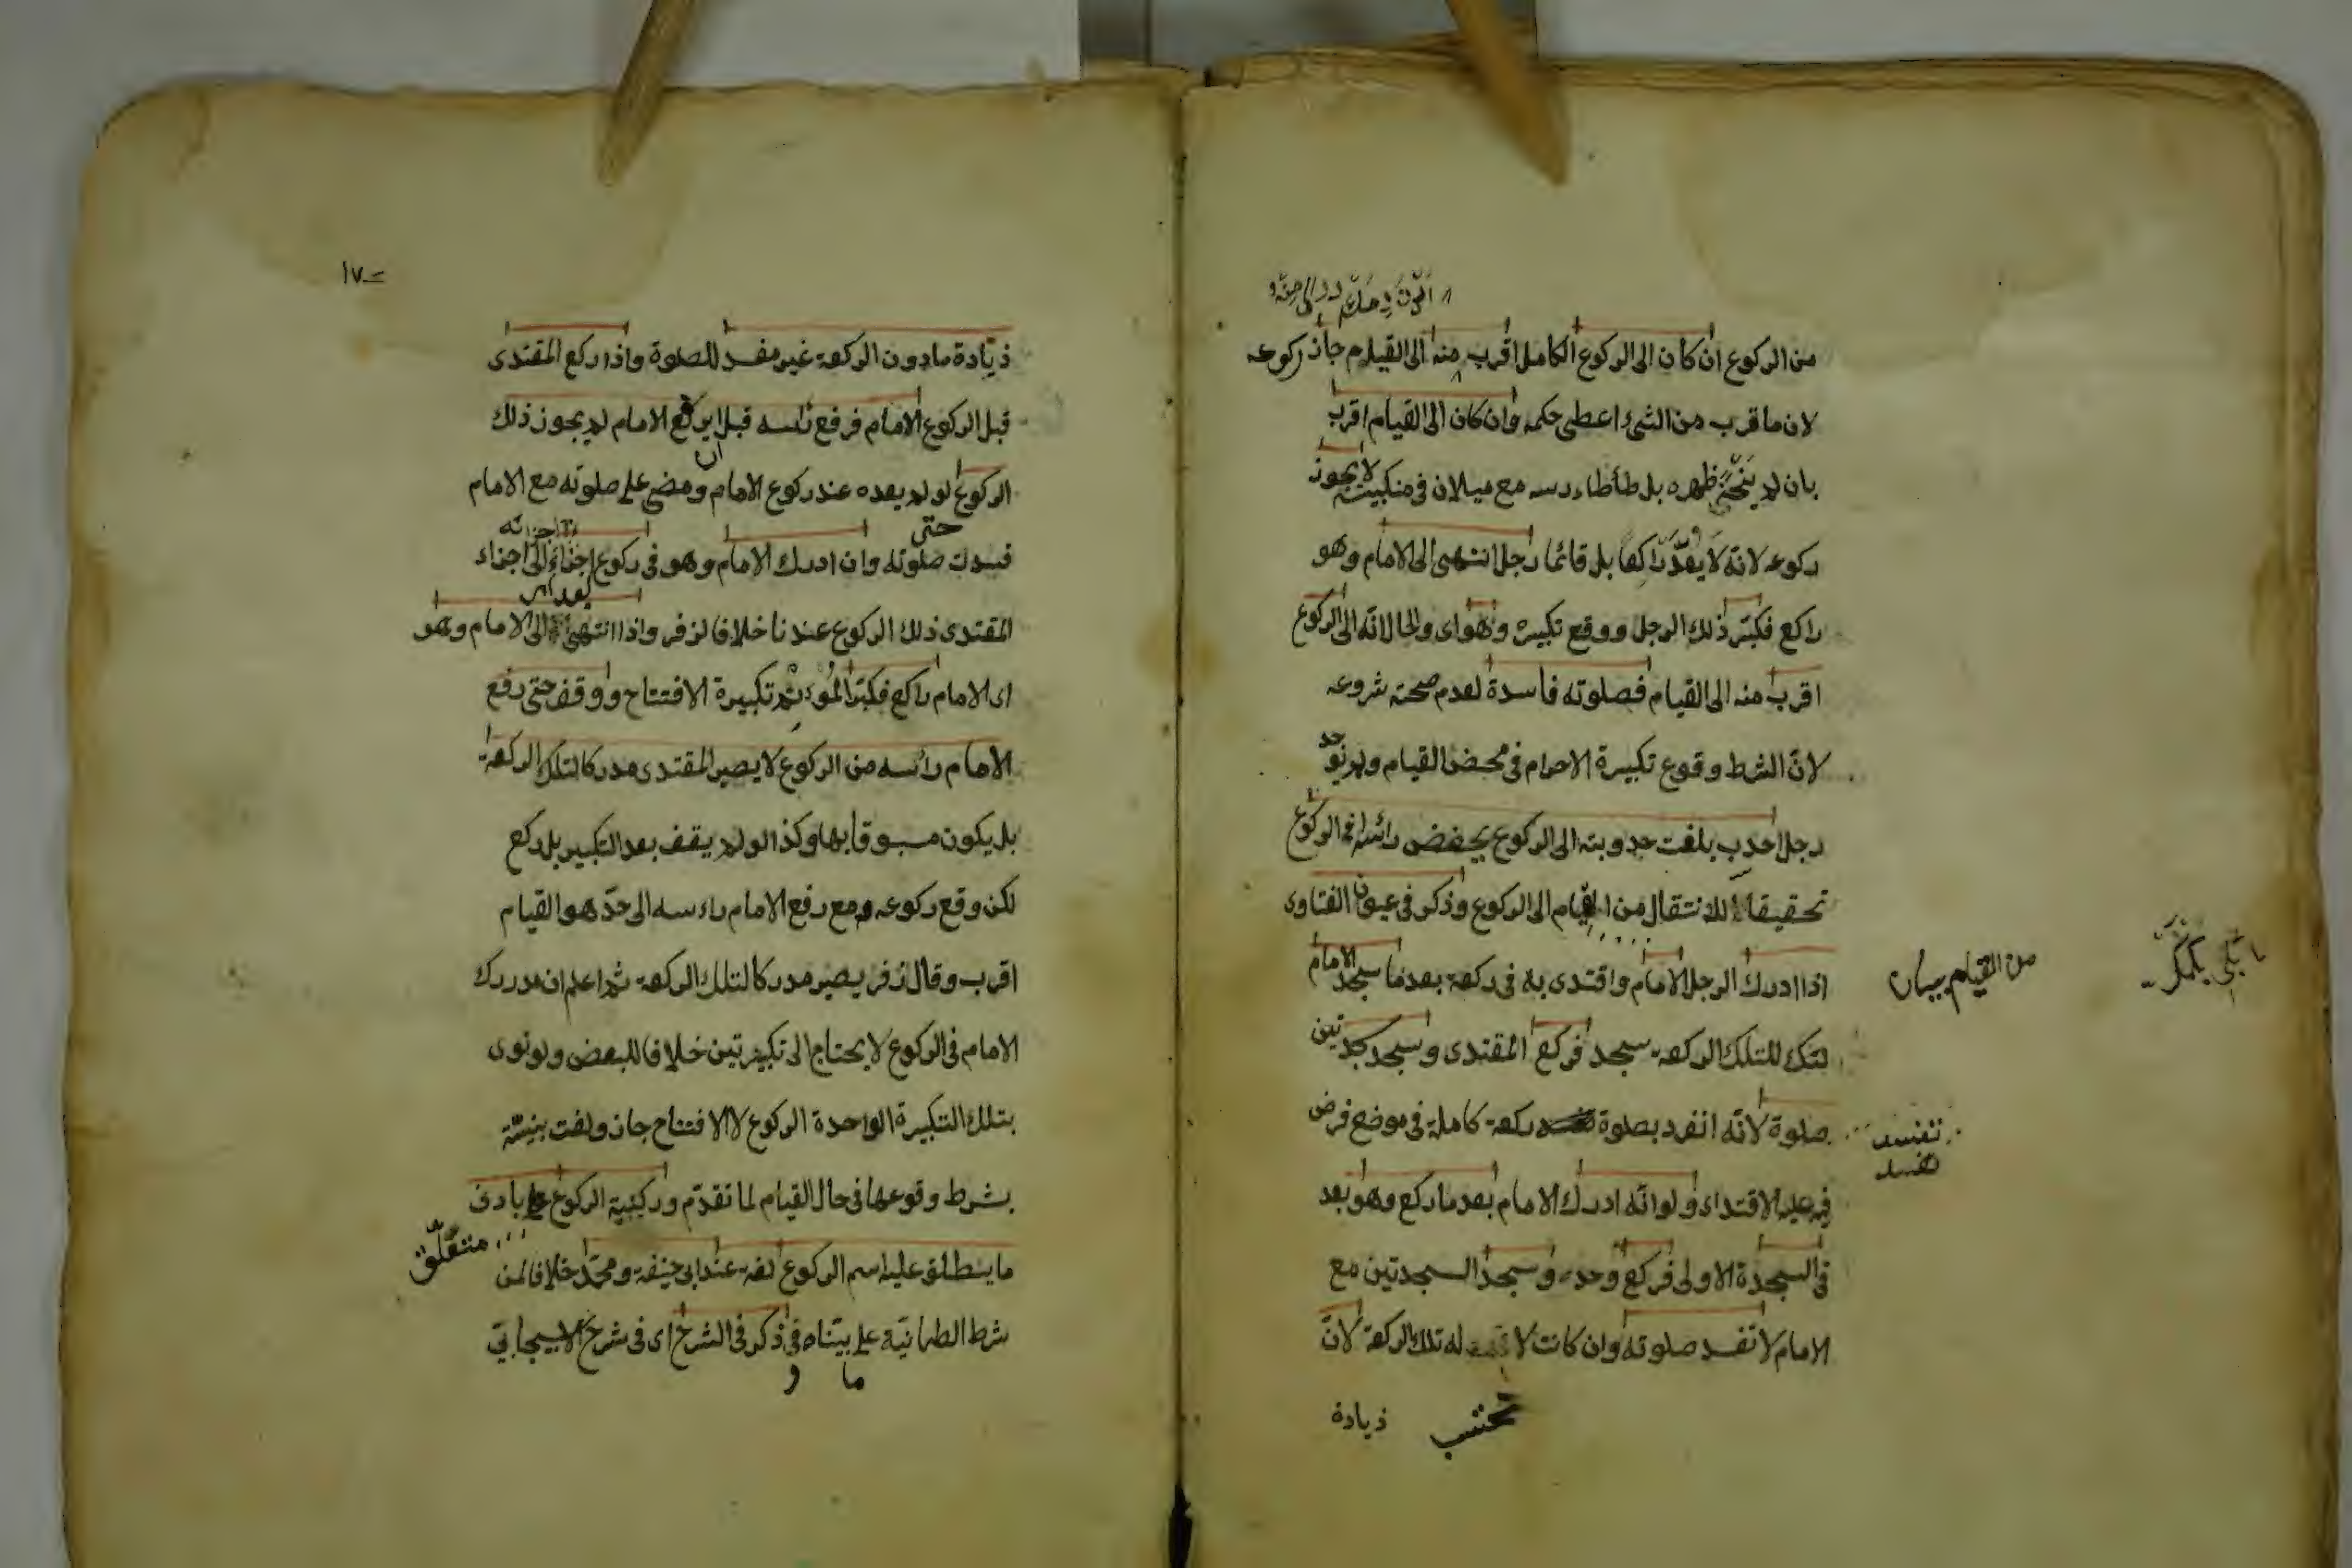 من الركوع ان كان الى الركوع الكامل اقرب منه الى القيام جاز ركوعه
لان ما قرب من الشئ اعطى حكمه وان كان الى القيام اقرب
بان لم ينحن ظهره بل طأطاء رسه مع ميلان فى منكبيه لا يجوز
ركوعه لانه لا يعدّ راكعا بل قائما رجل انتهى الى الامام وهو
راكع فكبّر ذلك الرجل ووقع تكبيره وهو اى والحال انه الى الركوع
اقرب منه الى القيام فصلوته فاسدة لعدم صحة شروعه
لانّ الشرط وقوع تكبيرة الاحرام فى محض القيام ولم يوجد
رجل احدب بلغت حدوبته الى الركوع يخفض رائسه فى الركوع
تحقيقا للانتقال من القيام الى الركوع وذكر فى عيون الفتاوى
من القيام بيان
اذا ادرك الرجل الامام واقتدى به فى ركعة بعد ما سجد الامام
لتلك الركعة سجد فركع المقتدى وسجد سجدتين
تفسد
تفسد
صلوة لانّه انفرد بصلوة ركعة كاملة فى موضع فرض
فيه عليه الاقتداء ولو انّه ادرك الامام بعد ما ركع وهو بعد
فى السجدة الاولى فركع وحده وسجد السجدتين مع
الامام لا تفسد صلوته وان كانت لا له تلك الركعة لانّ
تحتسب
ذيادة
١٧
ذيادة مادون الركعة غير مفسد للصلوة واذا ركع المقتدى
قبل الركوع الامام فرفع رئسه قبل ان يركع الامام لم يجوز ذلك
الركوع لو لم يعده عند ركوع الامام ومضى على صلوته مع الامام
حتى
فسدت صلوته وان ادرك الامام وهو فى ركوع اجزاء الى اجزاء
المقتدى ذلك الركوع عندنا خلافا لزفر واذا انتهى الى الامام وهو
اى الامام راكع فكبّر المؤتم تكبيرة الافتتاح ووقف حتى رفع
الامام رائسه من الركوع لا يصير المقتدى مدركا لتلك الركعة
بل يكون مسبوقا بها وكذا لو لم يقف بعد التكبير بل ركع
لكن وقع ركوعه مع رفع الامام راءسه الى حدّ هو القيام
اقرب وقال زفر يصير مدركا لتلك الركعة ثم اعلم ان مدرك
الامام فى الركوع لا يحتاج الى تكبيرتين خلافا للبعض ولو نوى
بتلك التكبيرة الواحدة الركوع لا الافتتاح جاز ولغت نيّته
بشرط وقوعها فى حال القيام لما تقدّم وركنية الركوع بادنى
متعلّق
ما ينطلق عليه اسم الركوع لغة عند ابى حنيفة ومحمّد خلافا لمن
شرط الطمانيّة على ما بيّناه وفى ذكر فى الشرح اى فى شرح الاسبيجابى